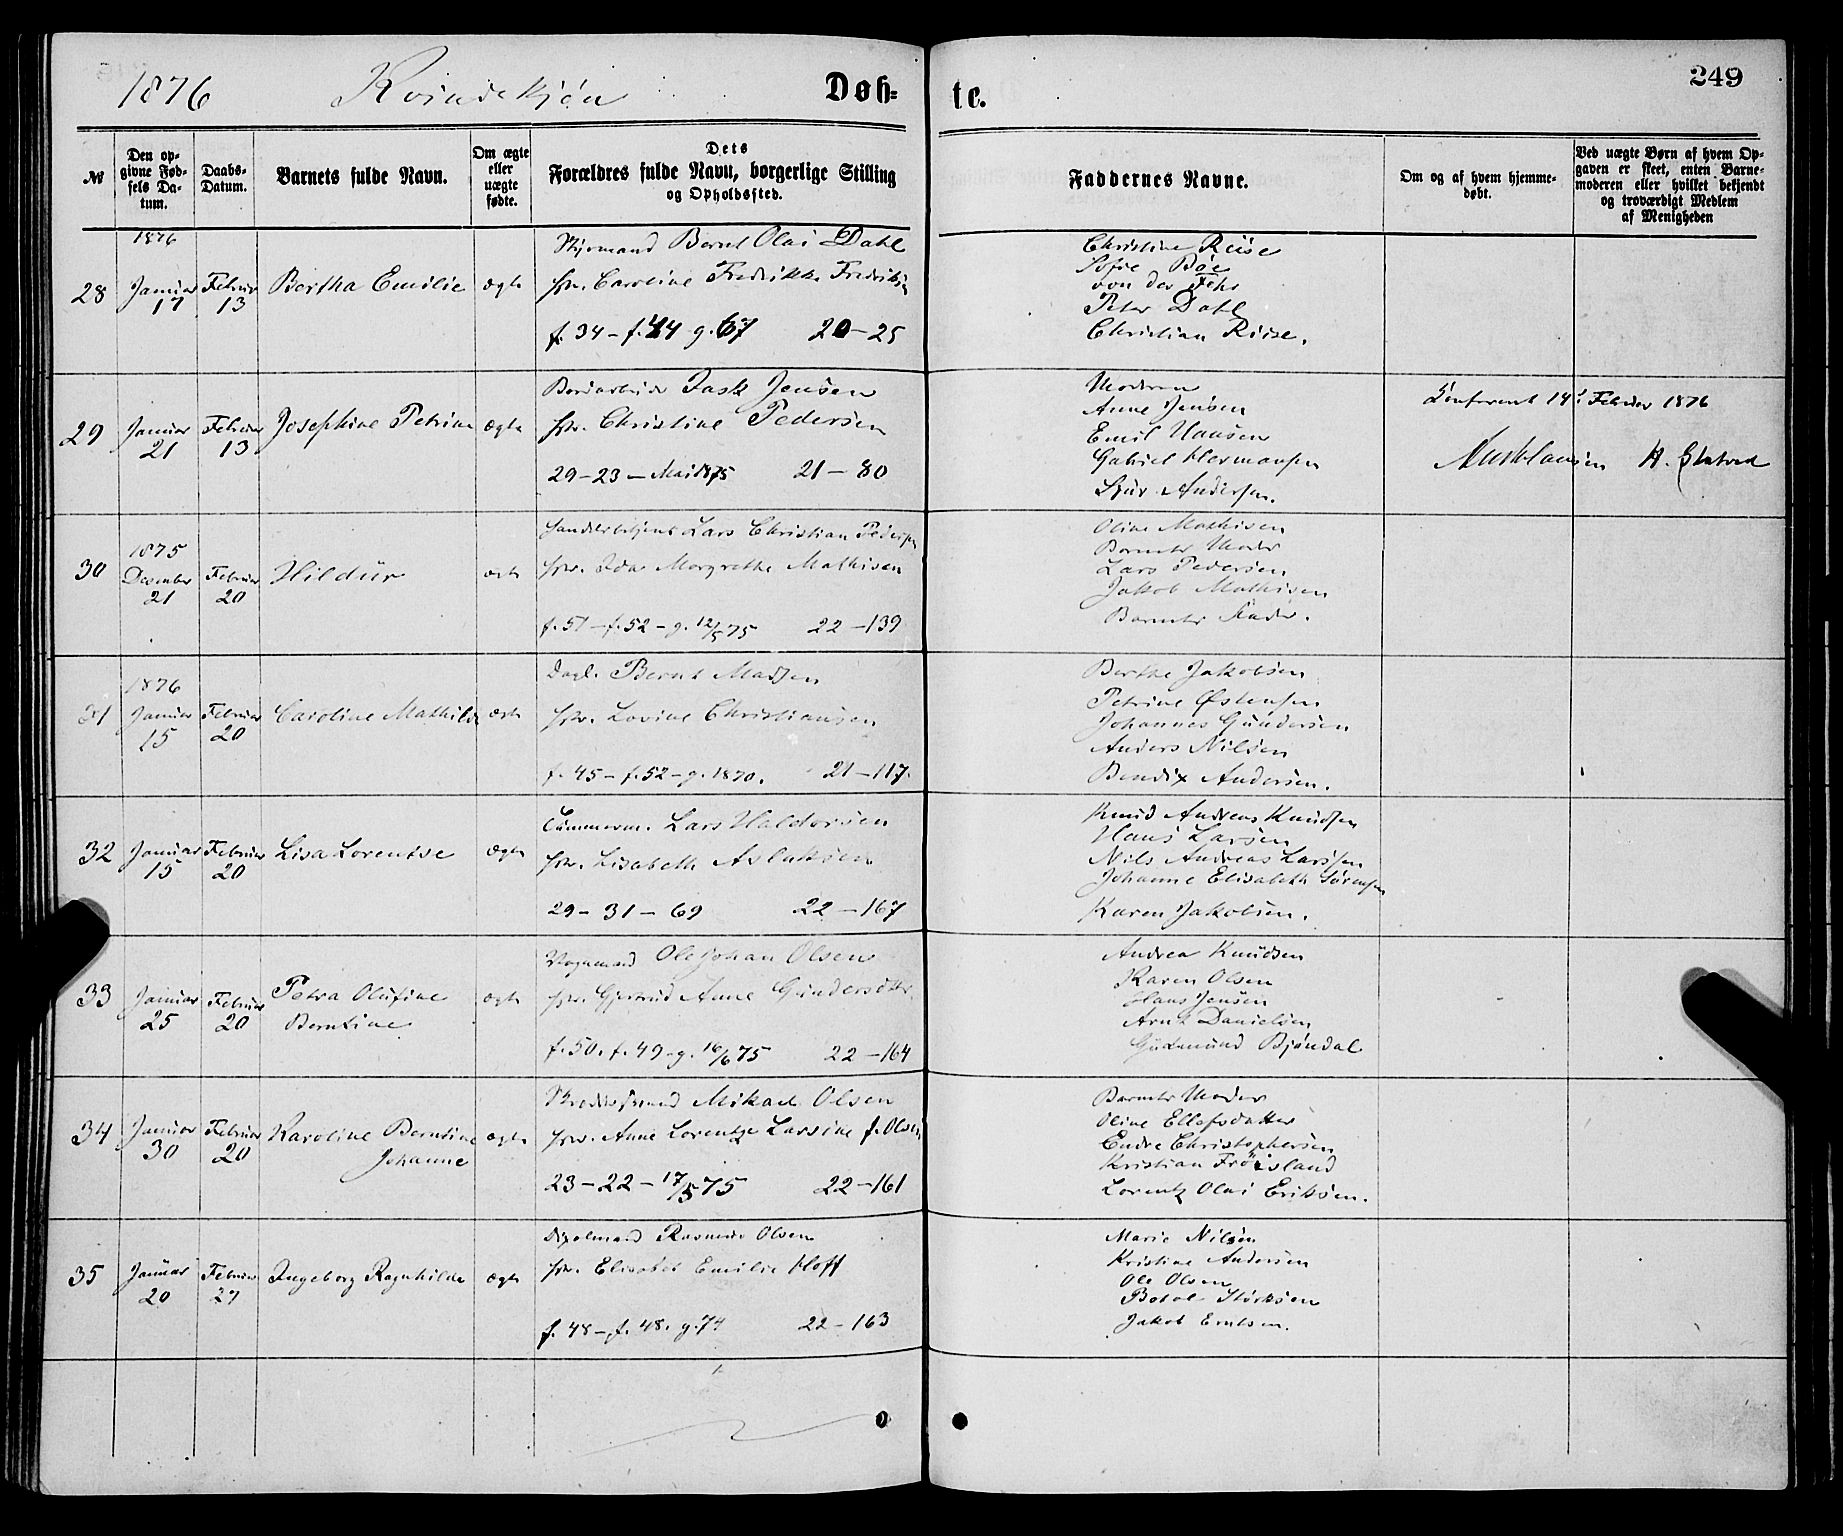 1876 Kvindekjøn Døb= te. 249
№
Den op-
givne Fød-
sels Da-
tum.
Daabs-
Datum.
Barnets fulde Navn.
Om ægte
eller
uægte
fødte.
Dets
Forældres fulde Navn, borgerlige Stilling
og Opholdssted.
Faddernes Navne.
Om og af hvem hjemme-
døbt.
Ved uægte Børn af hvem Op-
gaven er skeet, enten Barne-
moderen eller hvilket bekjendt
og troværdigt Medlem
af Menigheden
28
1876
Januar
17
Februar
13
Bertha Emilie
ægte
Styrmand Bernt Olai Dahl
Caroline Fredrikke
f. 34 – f. 44 g. 67 20 – 25
Christine Riise
Sofie Bøe
von der Fehr
Peter Dahl
Christian Riise.
29
Januar
21
Februar
13
Josephine Petrine
ægte
Jensen
Christine Pedersen
29 – 23 – Mai 1875 21 – 80
Moderen
Anne Jensen
Emil Hansen
Gabriel Hermansen
Andersen.
Konfereret 14. Februar 1876
30
1875
Desember
21
Februar
20
Hildur
ægte
Lars Christian Pedersen
Ida Margrethe Mathisen
f. 51 – f. 52 – g. 12/5 75 22 – 139
Oline Mathisen
Barnets Moder
Lars Pedersen
Jakob Mathisen
Barnets Fader.
31
1876
Januar
15
Februar
20
Caroline Mathilde
ægte
Dagl. Bernt Madsen
Lovine Christiansen
f. 45 – f. 52 – g. 1870. 21 – 117.
Berthe Jakobsen
Petrine Østensen
Johannes Gundersen
Anders Nilsen
Bendix Andersen.
32
Januar
15
Februar
20
Lisa Lorentse
ægte
Tømmerm. Lars Haldorsen
Lisabeth Aslaksen
29 – 31 – 69 22 – 167
Knud Andreas Knudsen
Hans Larsen
Nils Andreas Larssen
Johanne Elisabeth Sørensen
Karen Jakobsen.
33
Januar
25
Februar
20
Petra Olufine
Berntine
ægte
Vognmand Ole Johan Olsen
Gjertrud Anne Gundersdtr.
f. 50. f. 49 – g. 16/6 75 22 – 164
Andrea Knudsen
Karen Olsen
Hans Jensen
Arnt Danielsen
Gudmund Bjøndal
34
Januar
30
Februar
20
Karoline Berntine
Johanne
ægte
Mikael Olsen
Anne Lorentze Larsine f. Olsen
23 – 22 – 17/5 75 22 – 161
Barnets Moder
Oline Ellefsdatter
Endre Christophersen
Kristian Frøisland
Lorentz Olai Eriksen.
35
Januar
20
Februar
27
Ingeborg Ragnhilda
ægte
Rasmus Olsen
Elisabet Emilie Hoff
f. 48 – f. 48. g. 74 22 – 163
Marie Nilsen
Kristine Andersen
Ole Olsen
Jakob